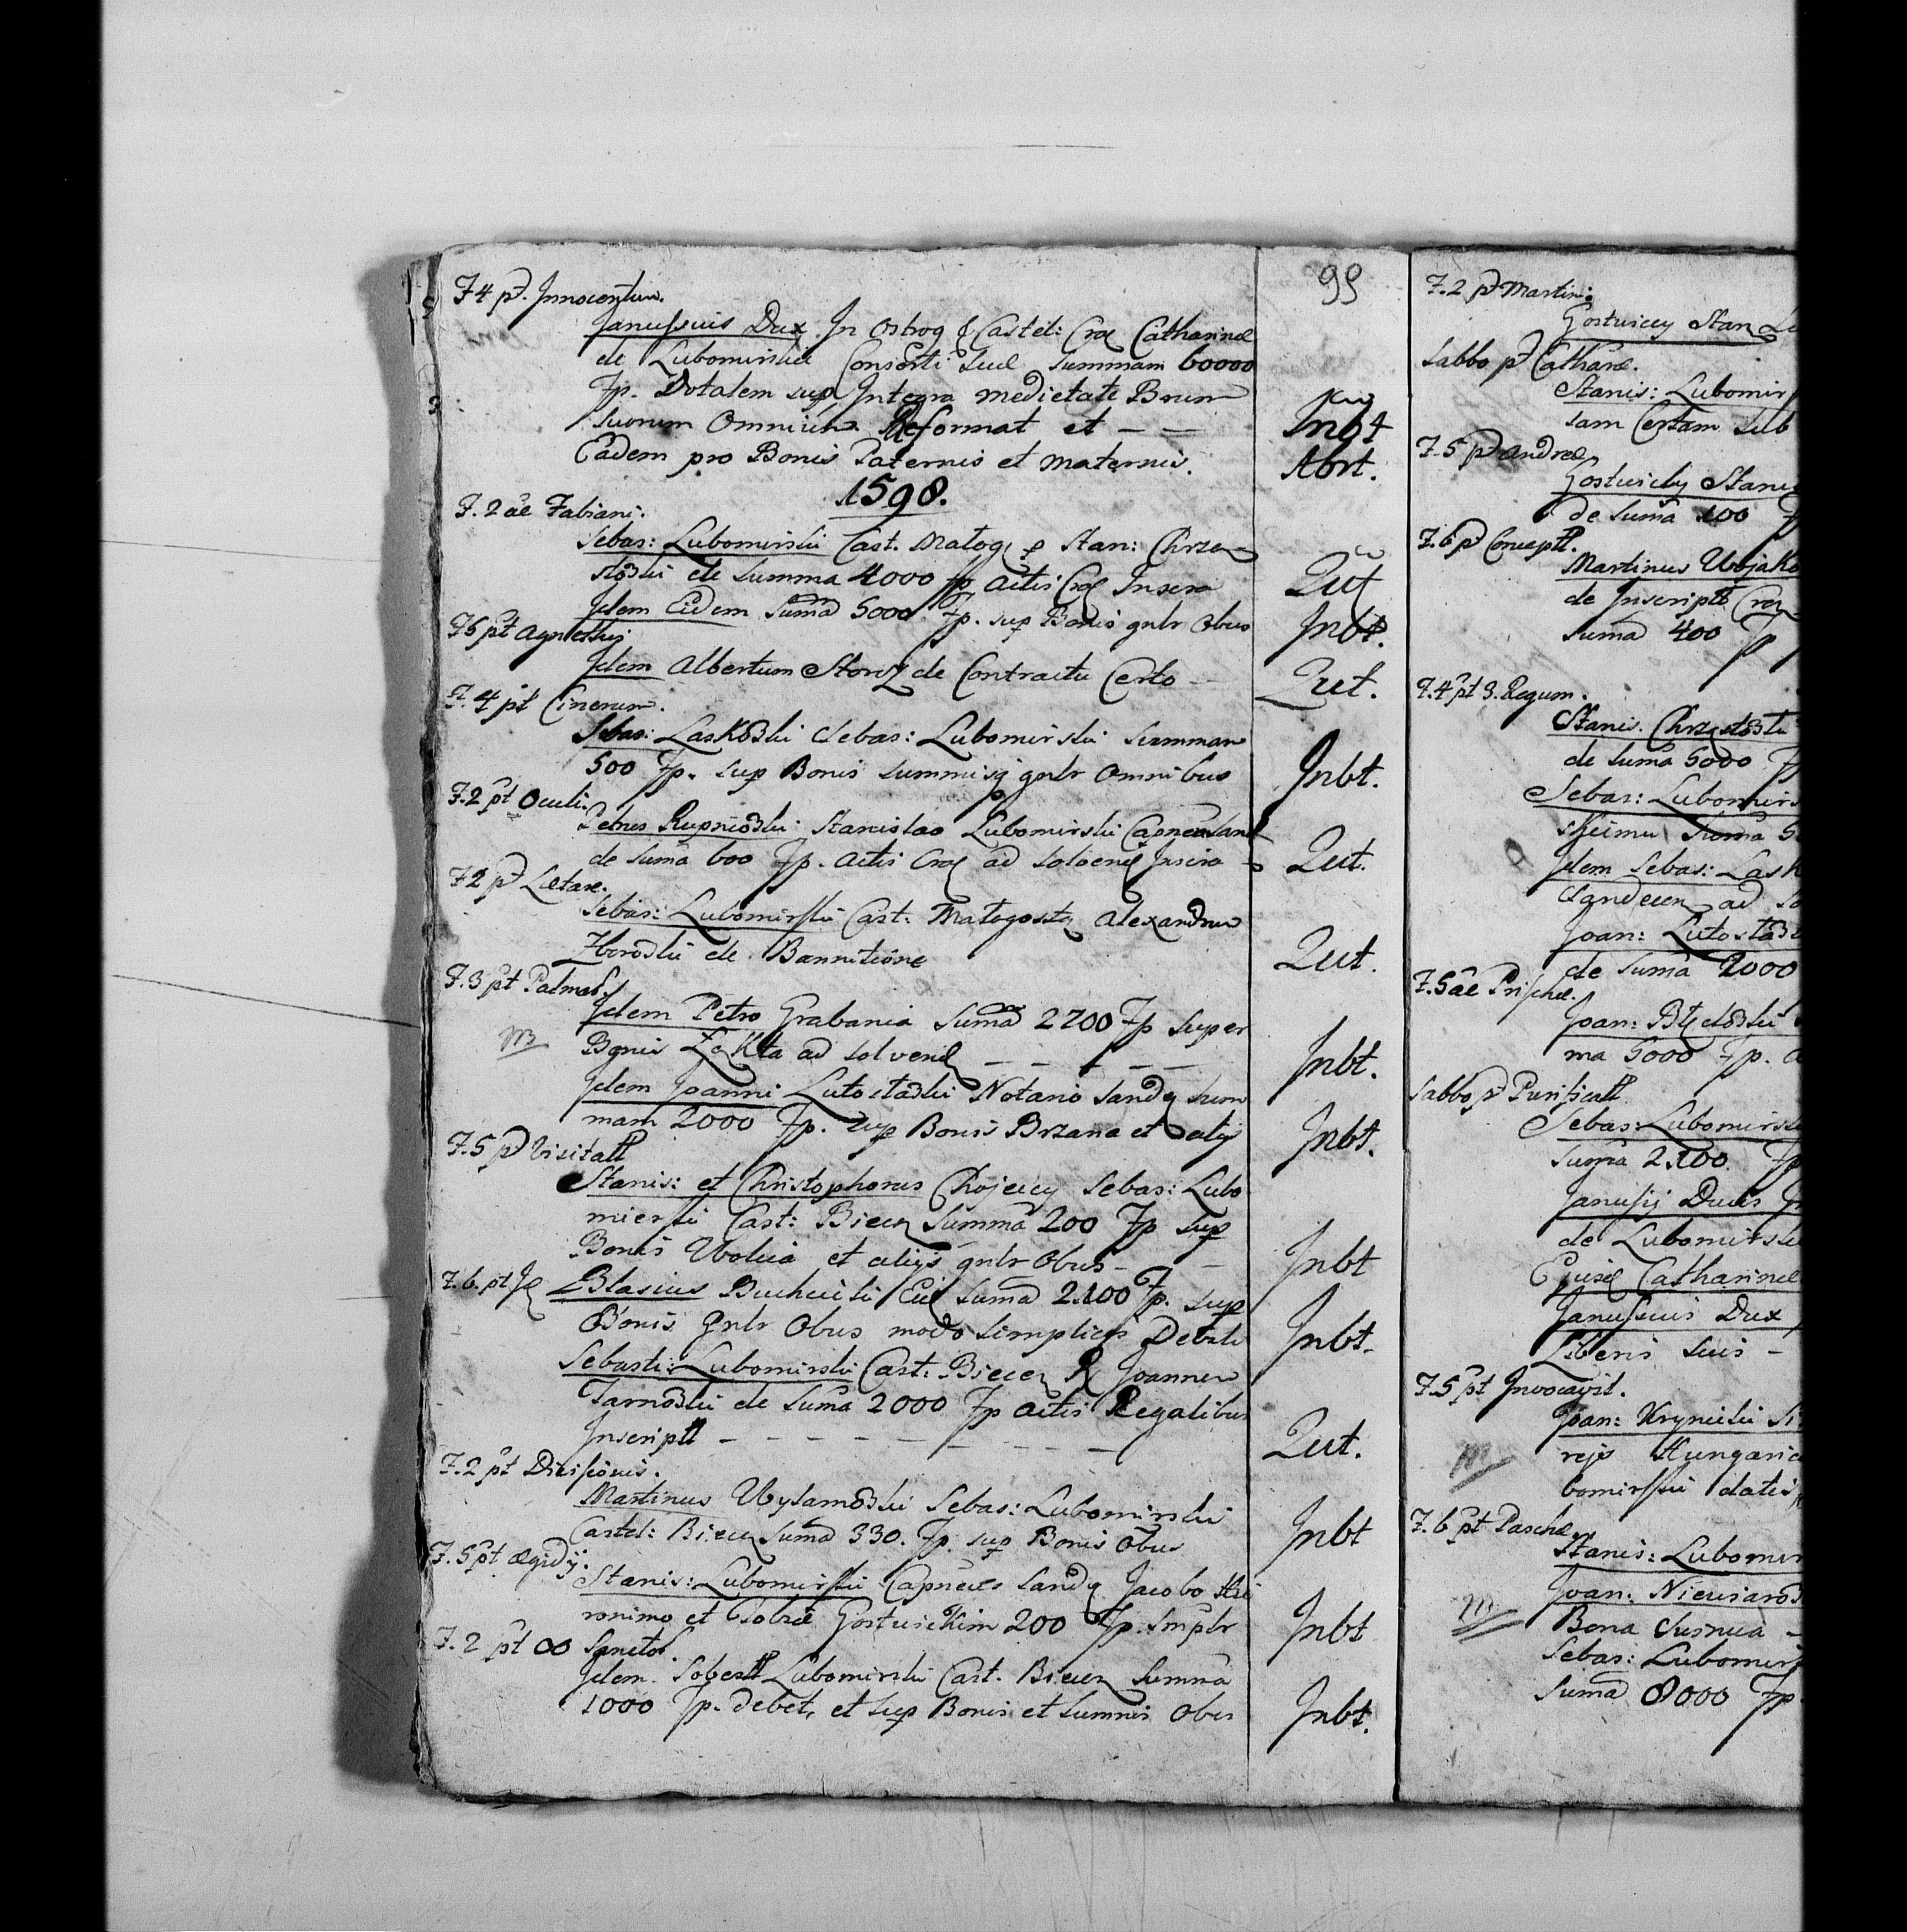 99
F 4 pt. Innocentum.
Janussius Dux In Ostrog & Castel: Crac Catharinæ
de Lubomirskie Consorti Suæ Summam 60000
Fp. Dotalem sup Integra medietate Bnrum
suorum Omnium Reformat et — — Inbt
Eadem pro Bonis Paternis et maternis. Abrt.
1598.
F. 2 ae Fabiani.
Sebas: Lubomirski Cast. Matog Stan: Chrza
stoski de Summa 4000 fp actis Crac Inscro Qut
Idem Eidem Suma 5000 Fp. sup Bonis gnlr Obus Inbt.
F 6 pt Agnethis
Idem Albertum Storcz de Contractu Certo — Qut.
F. 4 pt Cinerum.
Sebas: Laskoski Sebas: Lubomirski Summam
500 Fp. sup Bonis summisq gnlr Omnibus Inbt.
F. 2 pt Oculi.
Petrus Rupnioski Stanislao Lubomirski Capneo Sand
de Suma 600 Fp. actis Crac ad solvend Inscro Qut.
F 2 pt Lætare.
Sebas: Lubomirski Cast: Matogosts Alexandrum
Zboroski de Bannitione Qut.
F. 3 pt Palmas.
Idem Petro Grabania Suma 2700 Fp super
Bonis Łąkta ad solvend — — — — Inbt.
Idem Joanni Lutostaski Notario Sandq Sum
mam 2000 Fp. sup Bonis Brzana et alijs Inbt.
F. 5 pt Visitatt
Stanis: et Christophorus Chojeccy Sebas: Lubo
mierski Cast: Biecz Summa 200 Fp sup
Bonis Wolica et alijs gnlr Obus — — Inbt
F. 6. pt
Blasius Buchcicki Eid Suma 2100 Fp. sup
Bonis Gnlr Obus modo simplicis Debiti Inbt.
Sebasti: Lubomirski Cast: Biecz Joannem
Tarnoski de Suma 2000 Fp actis Regalibus
Inscriptt — — — — — — — — Qut.
F. 2 pt Divisionis.
Martinus Wysamoski Sebas: Lubomirski
Castel: Biecz Suma 330. Fp. sup Bonis Obus Inbt
F. 5 pt Ægidij.
Stanis: Lubomirski Capneus Sandq Jacobo Hie
ronimo et Tobiæ Gostwickim 200 Fp. Smplr Inbt
F. 2 pt oo Sanctor.
Idem. Sobestt Lubomirski Cast. Biecz Summa
1000 Fp. debet, et sup Bonis et Summis Obus Inbt.
F. 2 pt Martini
Gostwiccy Stan Lu
Sabbo pt Catharæ.
Stanis: Lubomir
sam Certam Sub
F. 5 pt Andreæ
Gostwicky Stanis
de Suma 100
F. 6 pt Conceptt.
Martinus Wojako
de Inscriptt Crac
Suma 400 Fp
F. 4 pt 3. Regum.
Stanis. Chrząstoski
de Suma 5000 Fp
Sebas: Lubomirs
skiemu Suma
Idem Sebas: Lask
Sandecen ad So
Joan: Lutostas
de Suma 2000
F. 5 ae Priscæ.
Joan: Błędoski
ma 5000 Fp. a
Sabbo pt Purificatt
Sebas: Lubomirski
Suma 2100 Fp
Janusij Ducis
de Lubomirskie
Ejusd Catharinæ
Janussius Dux
Liberis Suis —
F. 5 pt Invocavit.
Joan: Krynicki
rejs Hungaric
bomirski datis
F. 6 pt Paschæ
Stanis: Lubomir
Joan: Niewiaros
Bona
Sebas: Lubomir
Suma 8000 Fp.